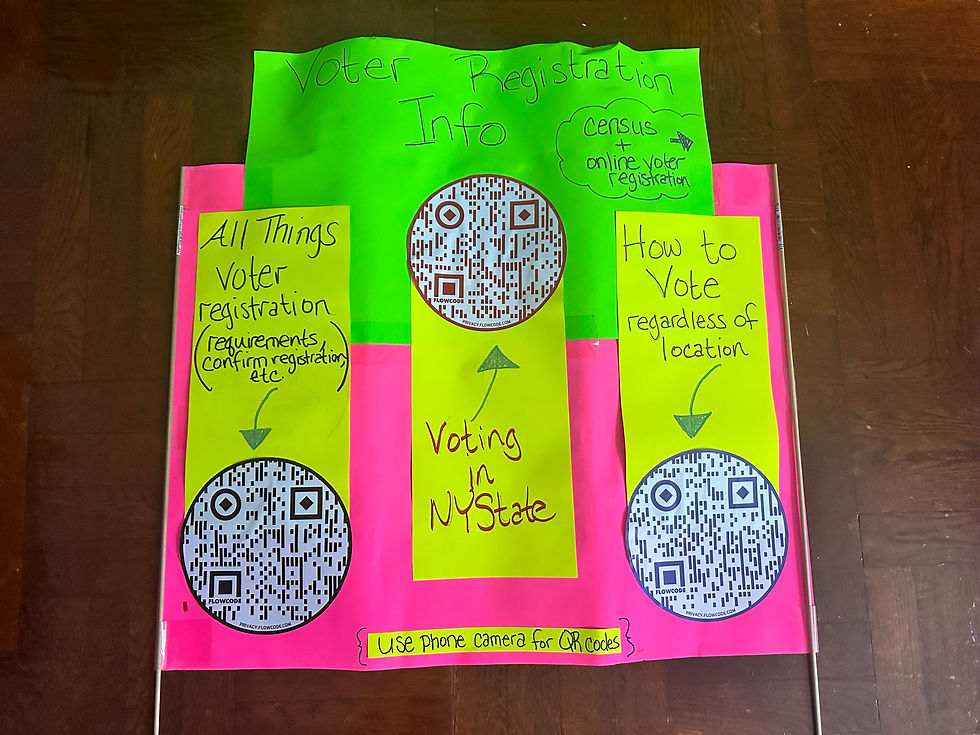 Voter Registration
Info
census
+
online voter
registration
All Things
Voter
registration
(requirements,
confirm registration,
etc.)
How to
Vote
regardless of
location
FLOWCODE
PRIVACY.FLOWCODE.COM
Voting
in
NYState
FLOWCODE
PRIVACY.FLOWCODE.COM
FLOWCODE
PRIVACY.FLOWCODE.COM
{use phone camera for QR codes}